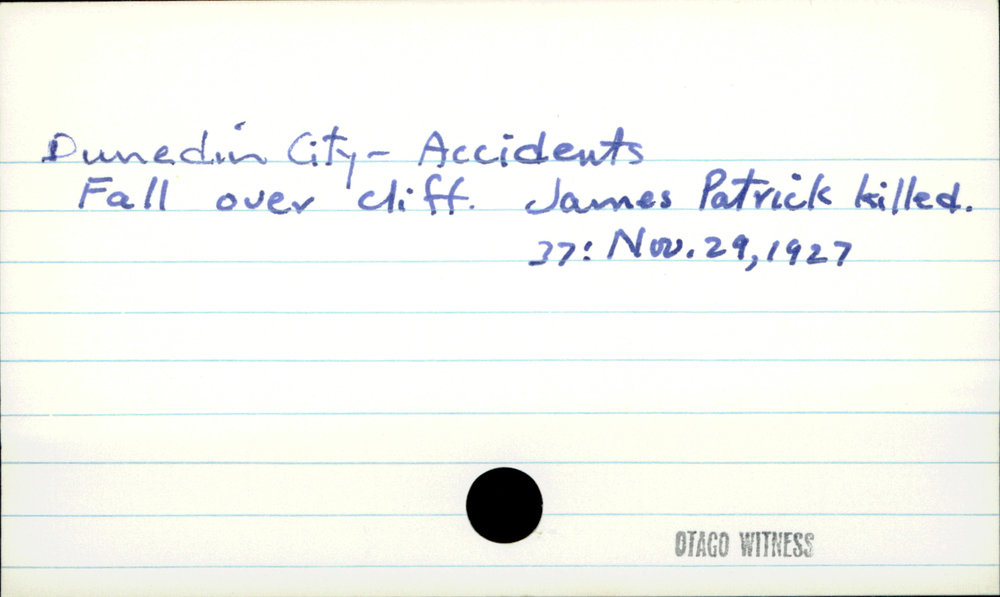 Dunedin City - Accidents
Fall over cliff. James Patrick killed.
37: Nov. 29, 1927
OTAGO WITNESS